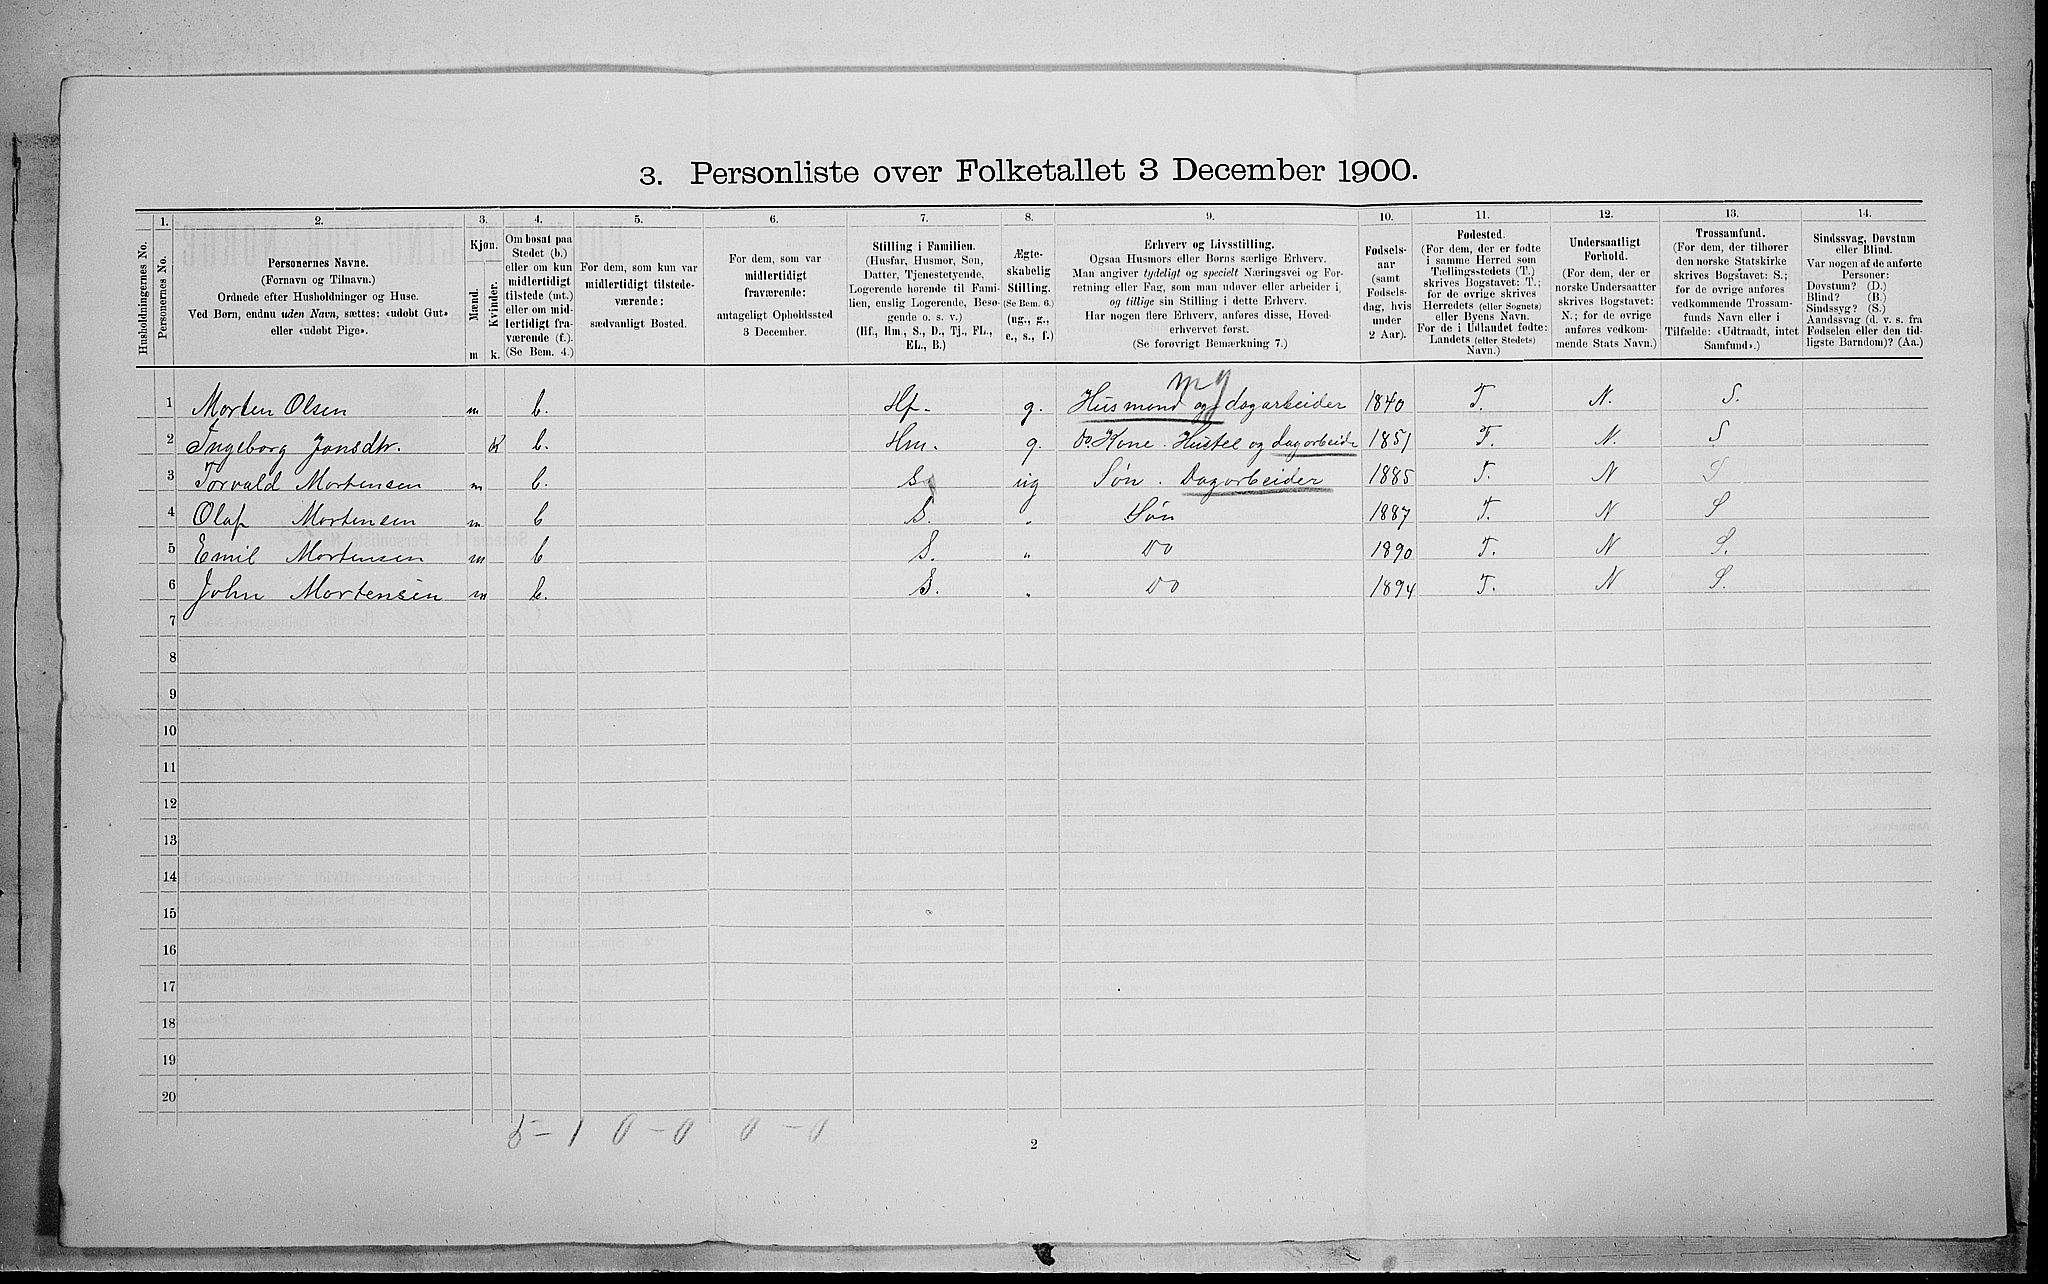 3. Personliste over Folketallet 3 December 1900.
1. 2. 3. 4. 5. 6. 7. 8. 9. 10. 11. 12. 13. 14.
Husholdningernes No.
Personernes No.
Personernes Navne.
(Fornavn og Tilnavn.)
Ordnede efter Husholdninger og Huse.
Ved Børn, endnu uden Navn, sættes: «udøbt Gut»
eller «udøbt Pige».
Kjøn.
Mænd.
Kvinder.
m k.
Om bosat paa
Stedet (b.)
eller om kun
midlertidigt
tilstede (mt.)
eller om mid-
lertidigt fra-
værende (f.).
(Se Bem. 4.)
For dem, som kun var
midlertidigt tilstede-
værende:
sædvanligt Bosted.
For dem, som var
midlertidigt
fraværende:
antageligt Opholdssted
3 December.
Stilling i Familien.
(Husfar, Husmor, Søn,
Datter, Tjenestetyende,
Logerende hørende til Fami-
lien, enslig Logerende, Besø-
gende o. s. v.)
(Hf., Hm., S., D., Tj., FL.,
EL., B.)
Ægte-
skabelig
Stilling.
(Se Bem. 6.)
(ug., g.,
e., s., f.)
Erhverv og Livsstilling.
Ogsaa Husmors eller Børns særlige Erhverv.
Man angiver tydeligt og specielt Næringsvei og For-
retning eller Fag, som man udover eller arbeider i,
og tillige sin Stilling i dette Erhverv.
Har nogen flere Erhverv, anføres disse, Hoved-
erhvervet først.
(Se forøvrigt Bemærkning 7.)
Fødsels-
aar
(samt
Fødsels-
dag, hvis
under
2 Aar).
Fødested.
(For dem, der er fødte
i samme Herred som
Tællingsstedets (T.)
skrives Bogstavet: T.;
for de øvrige skrives
Herredets (eller Sognets)
eller Byens Navn.
For de i Udlandet fødte:
Landets (eller Stedets)
Navn.)
Undersaatligt
Forhold.
(For dem, der er
norske Undersaatter
skrives Bogstavet:
N.; for de øvrige
anføres vedkom-
mende Stats Navn.)
Trossamfund.
(For dem, der tilhører
den norske Statskirke
skrives Bogstavet: S.;
for de øvrige anføres
vedkommende Trossam-
funds Navn eller i
Tilfælde: «Udtraadt, intet
Samfund».)
Sindssvag, Døvstum
eller Blind.
Var nogen af de anførte
Personer:
Døvstum? (D.)
Blind? (B.)
Sindssyg? (S.)
Aandssvag (d. v. s. fra
Fødselen eller den tid-
ligste Barndom)? (Aa.)
1 Morten Olsen m b. Hf. g. Husmand og dagarbeider 1840 T. N. S.
2 Ingeborg Jonsdtr. K b. Hm. g. Do. Kone. Hustel og dagarbeide 1851 T. N. S
3 Torvald Mortensen m b. S. ug Søn. Dagarbeider 1885 T. N S
4 Olaf Mortensen m b S. " Søn 1887 T. N S
5 Emil Mortensen m b S. " Do 1890 T. N S.
6 John Mortensen m b. S. " Do 1894 T. N S.
7
8
9
10
11
12
13
14
15
16
17
18
19
20
5 - 1 0 - 0 0 - 0
2